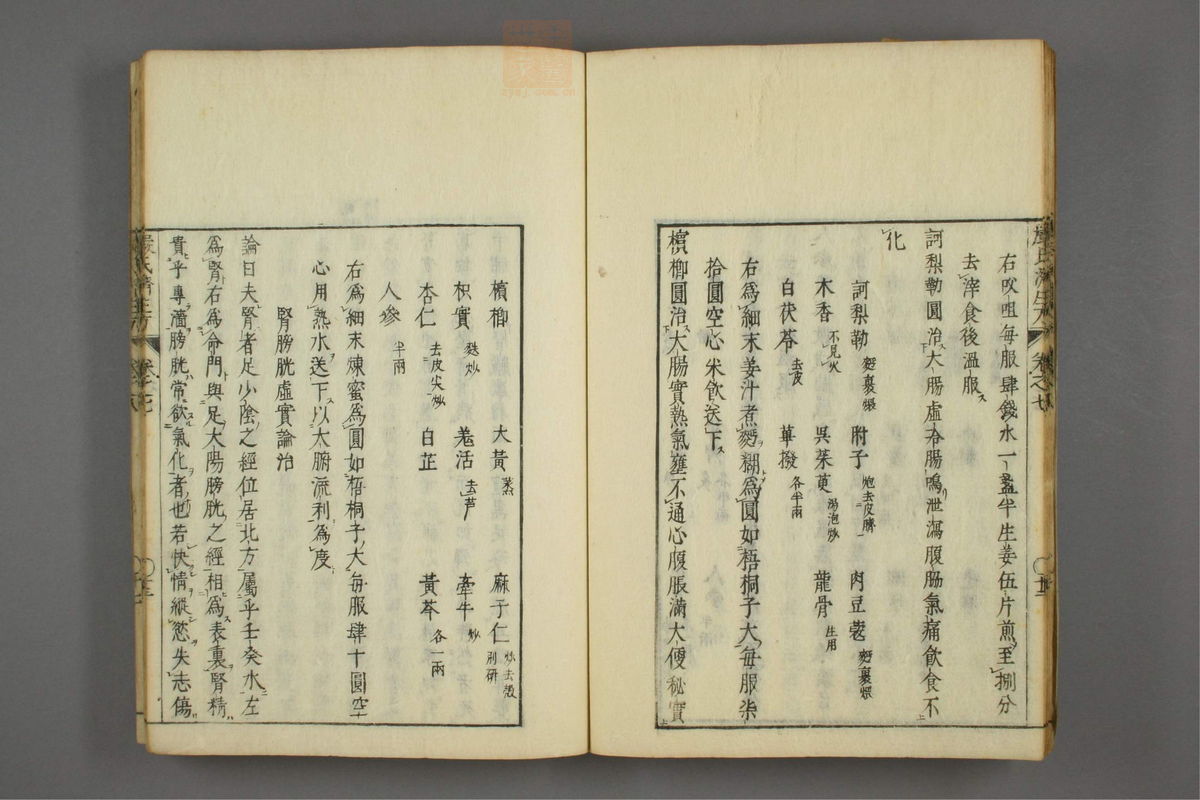 右㕮咀每服肆錢水一盞半生姜伍片煎至捌分
去滓食後溫服
訶梨勒圓治大腸虛冷腸鳴泄瀉腹脇氣痛飲食不
化
訶梨勒 麪裹煨 附子 炮去皮臍 肉豆蔲 麪裹煨
木香 不見火 吳茱萸 湯泡炒 龍骨 生用
白茯苓 去皮 蓽撥 各半兩
右為細末姜汁煮麪糊為圓如梧桐子大每服柒
拾圓空心米飲送下
檳榔圓治大腸實熱氣壅不通心腹脹滿大便秘實
檳榔 大黃 蒸 麻子仁 炒去殼別研
枳實 麩炒 羌活 去芦 牽牛 炒
杏仁 去皮尖炒 白芷 黃芩 各一兩
人參 半兩
右為細末煉蜜為圓如梧桐子大每服肆十圓空
心用熟水送下以大腑流利為度
腎膀胱虛實論治
論曰夫腎者足少陰之經位居北方屬乎壬癸水左
為腎右為命門與足太陽膀胱之經相為表裏腎精
貴乎專濇膀胱常欲氣化者也若快情縱慾失志傷